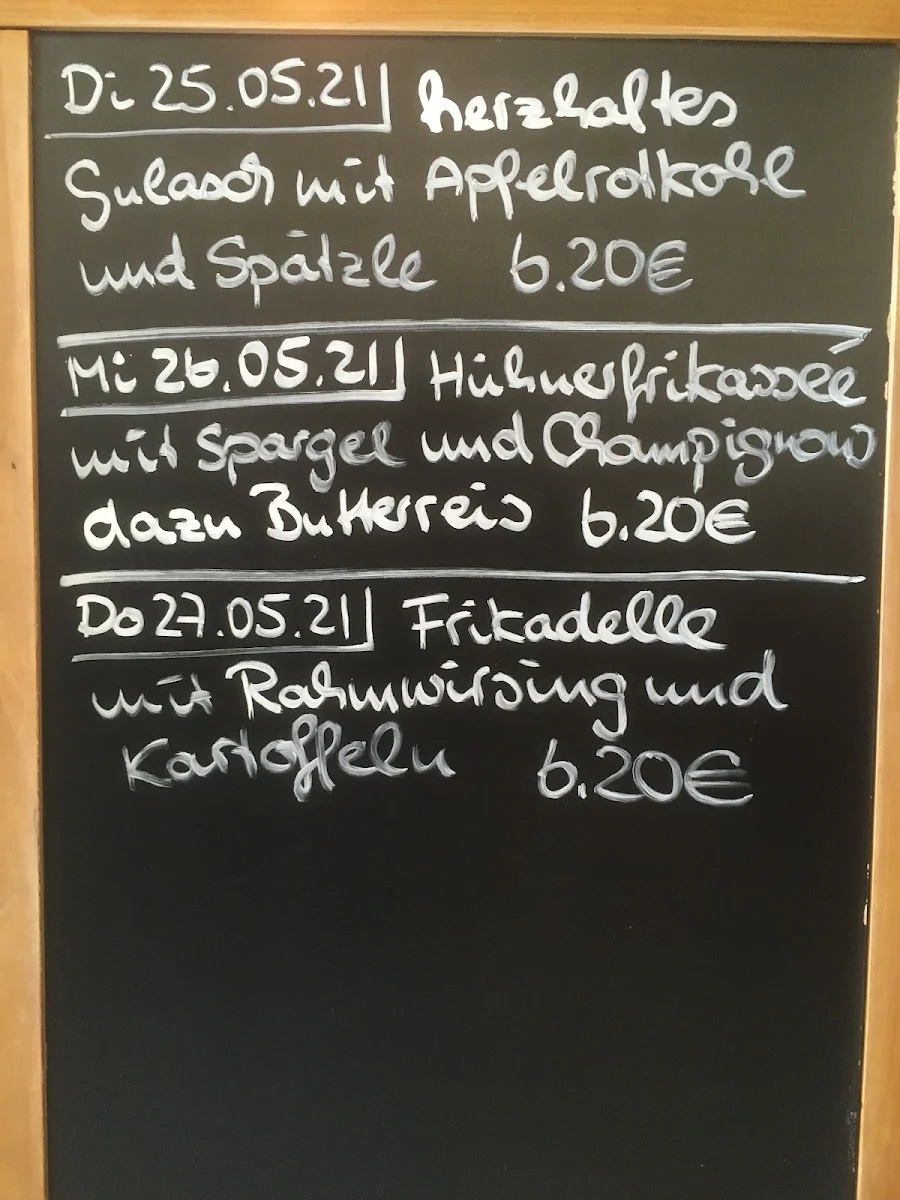 Di 25.05.21 herzhaftes
Gulasch mit Apfelrotkohl
und Spätzle 6.20€
Mi 26.05.21 Hühnerfrikassée
mit Spargel und Champignons
dazu Butterreis 6.20€
Do 27.05.21 Frikadelle
mit Rahmwirsing und
Kartoffeln 6.20€